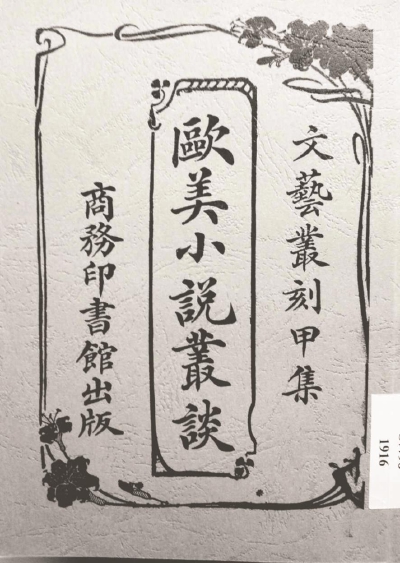 文藝叢刻甲集
歐美小説叢談
商務印書館出版
1916